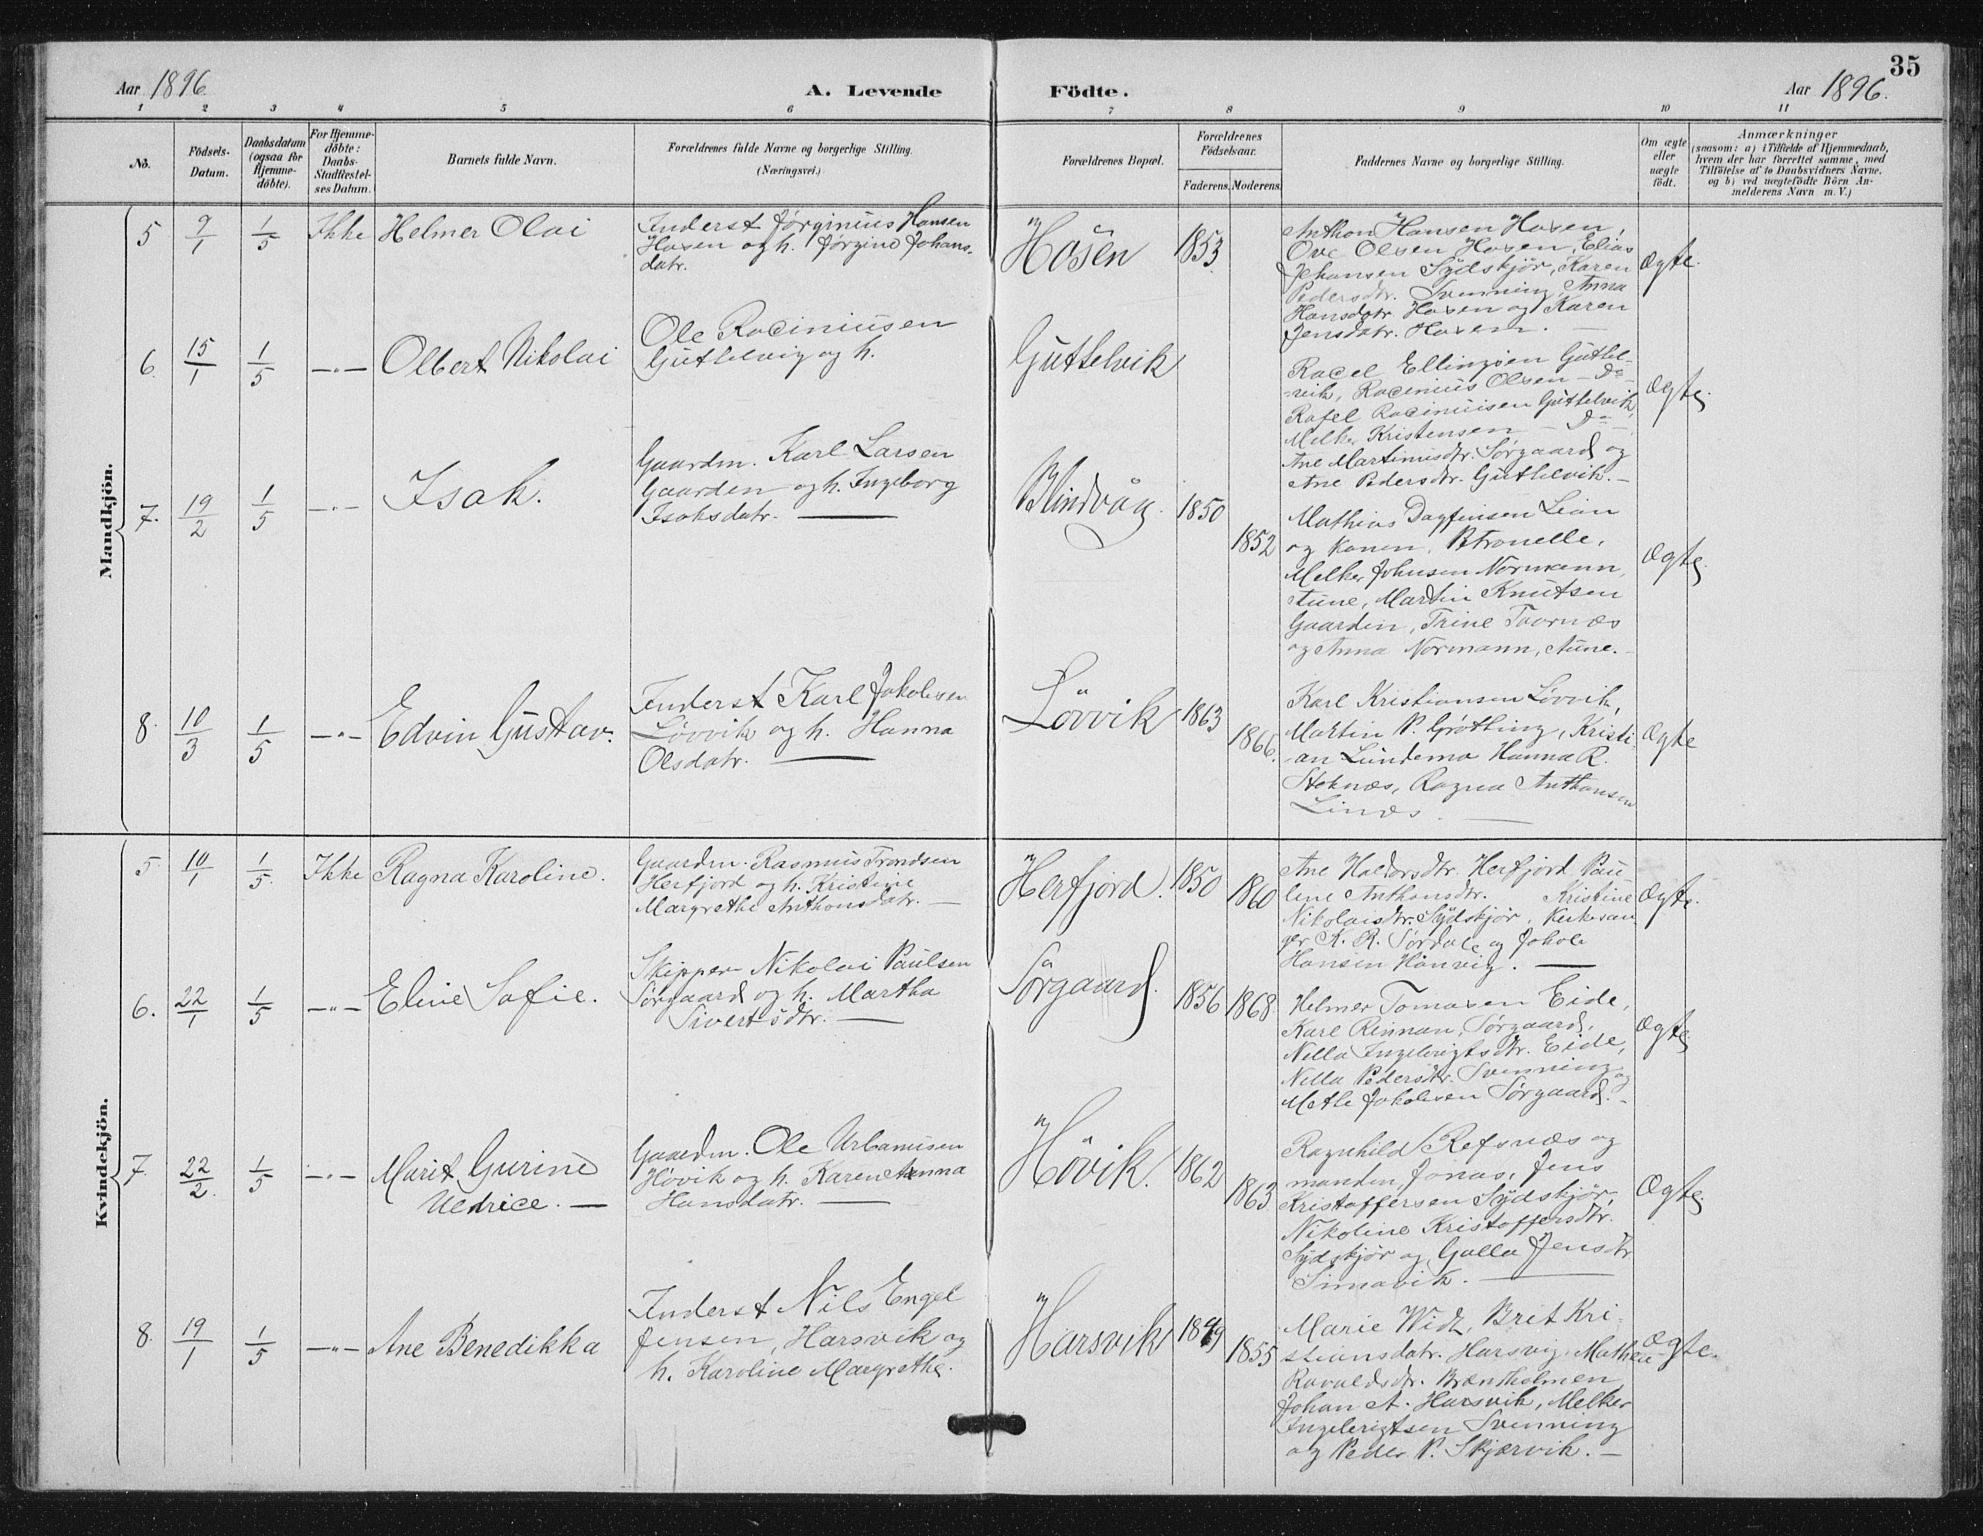 35
Aar 1896. A. Levende Födte. Aar 1896.
1 2 3 4 5 6 7 8 9 10 11
No.
Födsels-
Datum.
Daabsdatum
(ogsaa for
Hjemme-
döbte).
For Hjemme-
döbte:
Daabs-
Stadfæstel-
ses Datum.
Barnets fulde Navn.
Forældrenes fulde Navne og borgerlige Stilling.
(Næringsvei.)
Forældrenes Bopæl.
Forældrenes
Födselsaar.
Faderens. Moderens.
Faddernes Navne og borgerlige Stilling.
Om ægte
eller
uægte
födt.
Anmærkninger
(saasom: a) i Tilfælde af Hjemmedaab,
hvem der har forrettet samme, med
Tilföielse af to Daabsvidners Navne,
og b) ved uægtefödte Börn An-
melderens Navn m. V.)
Mandkjön.
5 9/1 1/5 Ikke Helmer Olai
Inderst Jørginius Hansen
Hosen og h. Jørgine Johans-
datr.
Hosen 1853.
Anthon Hansen Hosen,
Ove Olsen Hosen, Elias
Johansen Sydskjør, Karen
Pedersdtr. Svenning, Anna
Hansdatr. Hosen og Karen
Jensdatr. Hosen.
Ægte.
6. 15/1 1/5 —"— Olbert Nikolai
Ole Raciniusen
Guttelvig og h.
Guttelvik
Racel Ellingsen Guttel-
vik, Racinius Olsen — Do —
Rafel Raciniusen Guttelvik,
Melker Kristensen — Do —
Ane Martinusdtr. Sørgaard og
Ane Pedersdtr. Guttelvik. —
Ægte.
7. 19/2 1/5 —"— Isak.
Gaardm. Karl Larsen
Gaarden og h. Ingeborg
Isaksdatr. —
Blindvåg. 1850 1852
Mathias Dagfinsen Lian
og konen, Petronelle,
Melker Johnsen Normann,
Aune, Martin Knutsen
Gaarden, Trine Taarnæs
og Anna Normann, Aune. —
Ægte.
8. 10/3 1/5 —"— Edvin Gustav.
Inderst Karl Jakobsen
Løvvik og h. Hanna
Olsdatr. —
Løvvik 1863 1866.
Karl Kristiansen Løvvik,
Martin P. Grøtting, Kristi-
an Lundemo Hanna R.
Stoknæs, Ragna Anthonsen
Linæs —
Ægte
Kvindekjön.
5. 10/1 1/5. Ikke Ragna Karoline.
Gaardm. Rasmus Trondsen
Herfjord og h. Kristine
Margrethe Anthonsdatr. —
Herfjord. 1850 1860
Ane Haldorsdtr. Herfjord Pau-
line Anthonsdtr. Kristine
Nikolaisdtr. Sydskjør, Kirkesan-
ger K. R. Sørdale og Jakob
Hansen Hånvig. —
Ægte.
6. 22/1 1/5 —"— Eline Sofie.
Skipper Nikolai Paulsen
Sørgaard og h. Martha
Sivertsdtr. —
Sørgaard. 1856 1868.
Helmer Tomasen Eide,
Karl Rinnan, Sørgaard,
Nella Ingebrigtsdtr. Eide,
Nella Pedersdtr. Svenning og
Mette Jakobsen Sørgaard. —
Ægte.
7. 22/2. 1/5 —"— Marit Gurine
Uldrice. —
Gaardm. Ole Urbanusen
Høvik og h. Karen Anna
Hansdatr. —
Høvik. 1862 1863
Ragnhild Refsnæs og
manden, Jonas, Jens
Kristoffersen Sydskjør,
Nikoline Kristoffersdtr.
Sydskjør og Golla Jensdtr
Simavik. —
Ægte.
8. 19/1 1/5 —"— Ane Benedikka
Inderst Nils Engel
Jensen, Harsvik og
h. Karoline Margrethe.
Harsvik 1849 1855
Marie Widt, Brit Kri-
stiansdatr. Harsvig, Mathea
Ravaldsdtr. Brændholmen,
Johan A. Harsvik, Melker
Ingebrigtsen Svenning
og Peder P. Skjærvik. —
Ægte.